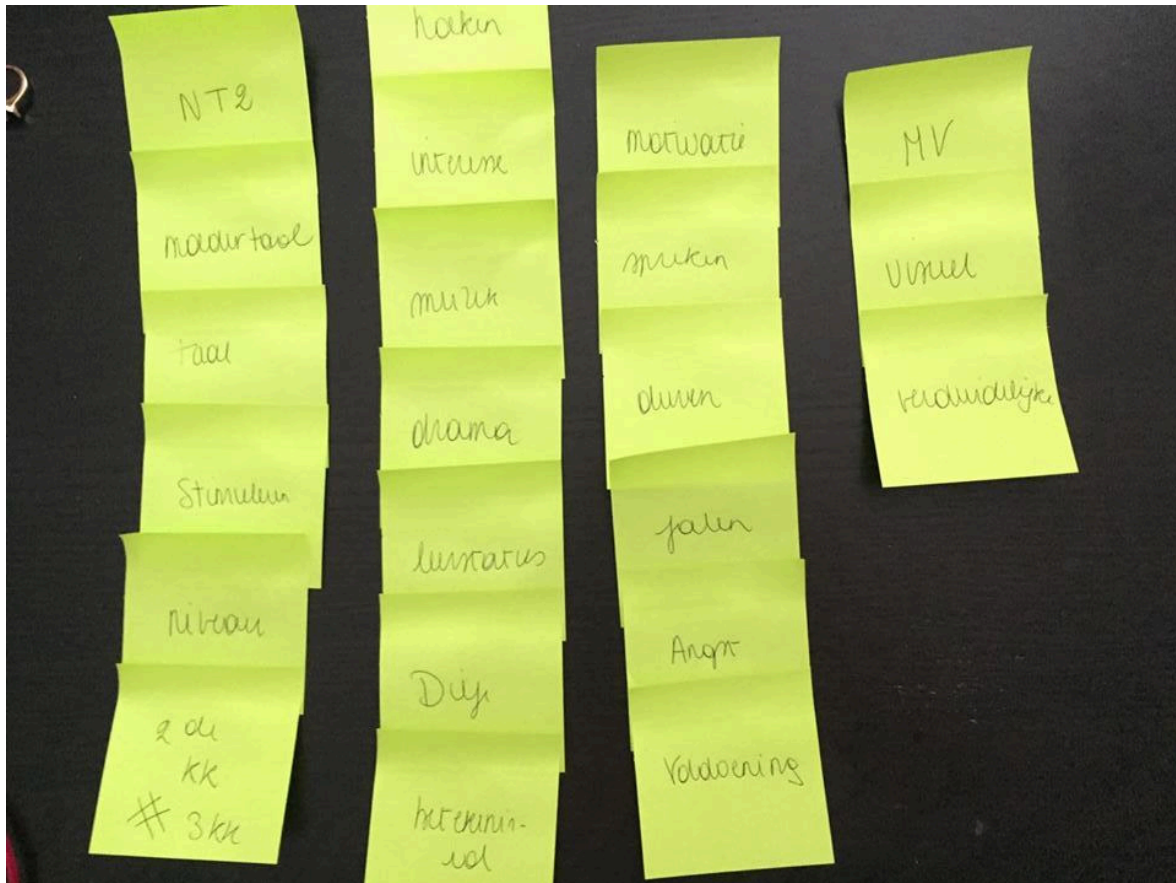 NT2
moedertaal
taal
Stimuleren
niveau
2de
KK
# 3KK
hoeken
interesse
muziek
drama
drama
motivatie
spreken
durven
falen
Angst
Voldoening
MV
visueel
verduidelijke